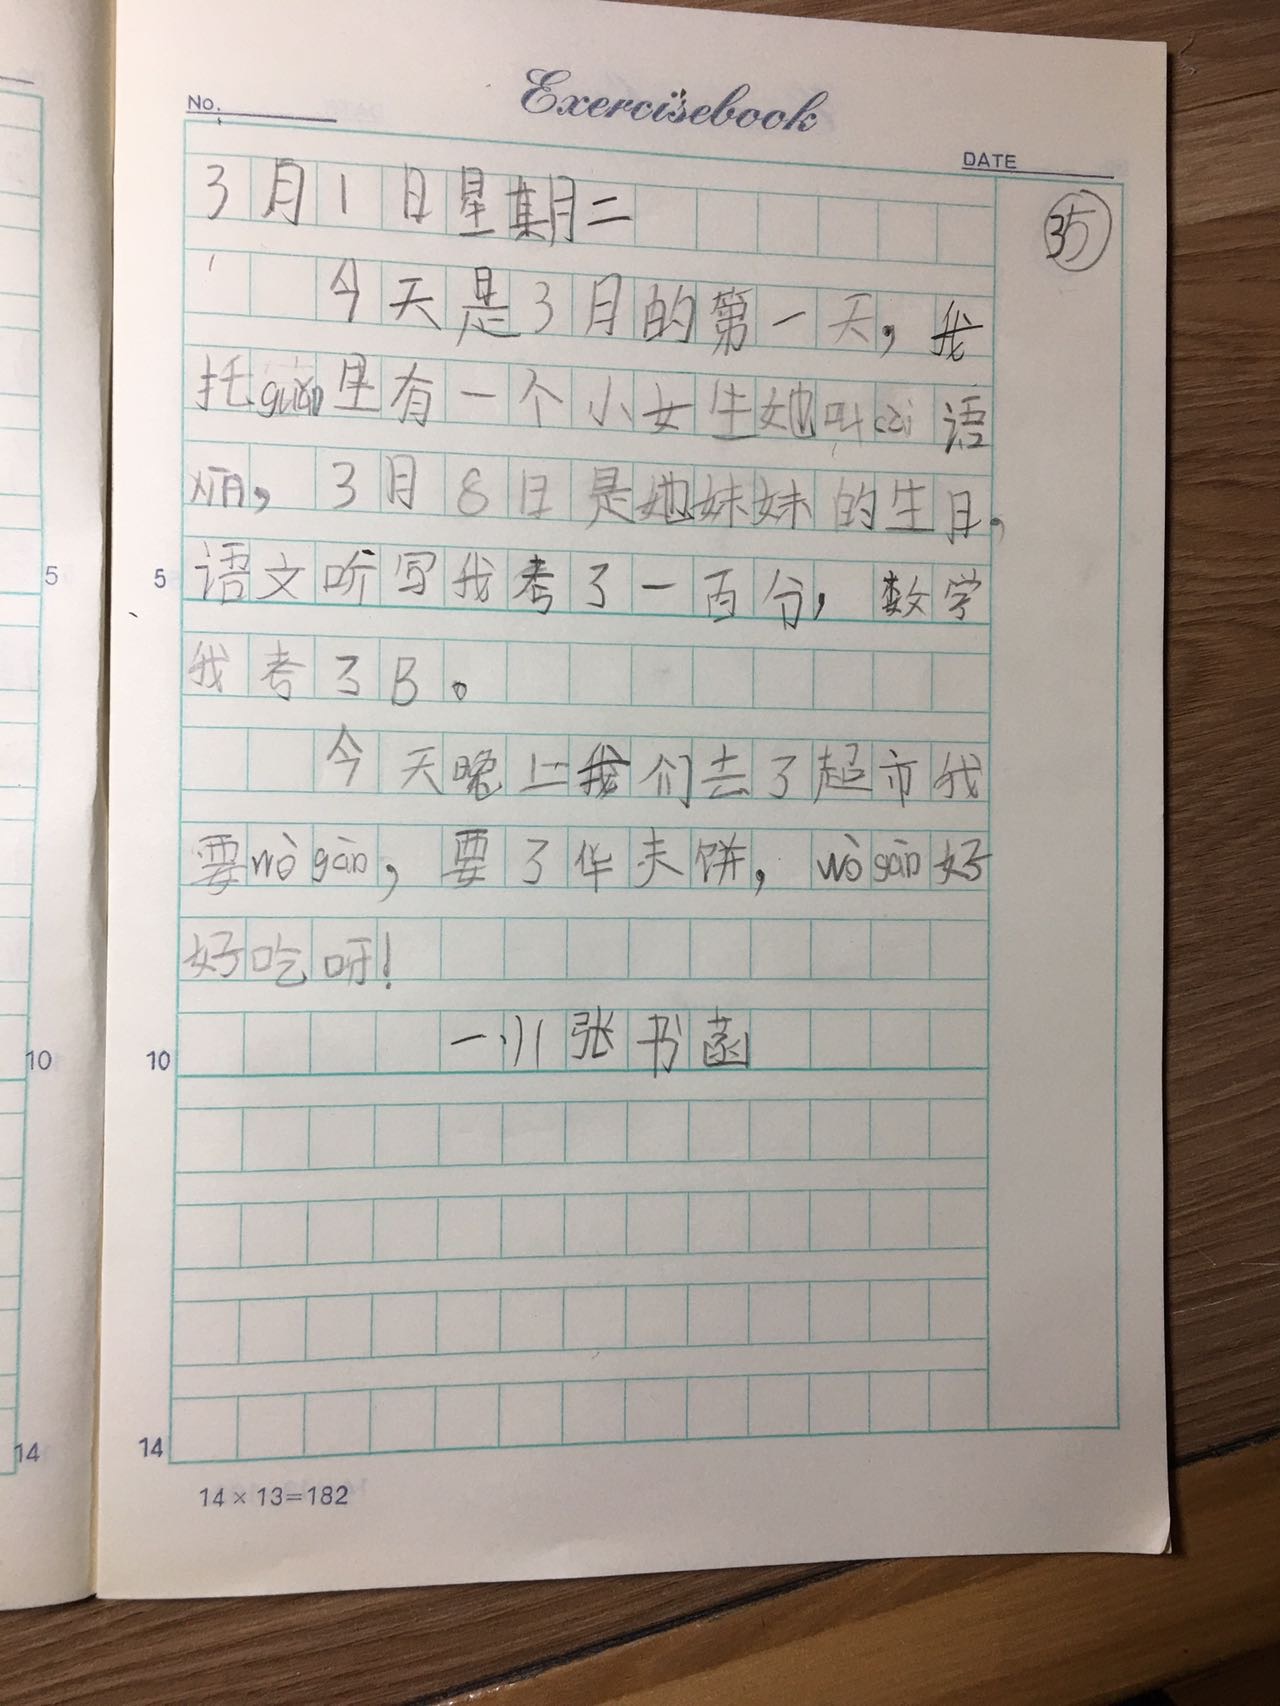 Exercisebook
No.
DATE
3月1日星期二
35
今天是3月的第一天,我
托guǎn里有一个小女生她叫cài语
,3月8日是她妹妹的生日,
5
5
语文听写我考了一百分,数学
我考了B。
今天晚上我们去了超市我
要wò gān,要了华夫饼,wò gān好
好吃呀!
10
10
一小张书菡
14
14
14×13=182